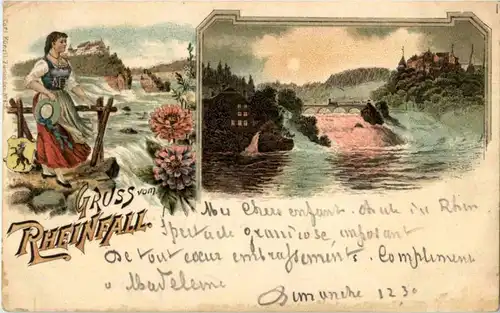 GRUSS vom
RHEINFALL.
Mes Chers enfant. Chute du Rhin
Spectacle grandiose, imposant
De tout cœur embrassements. Compliment
a Madeleine
Dimanche 12 30